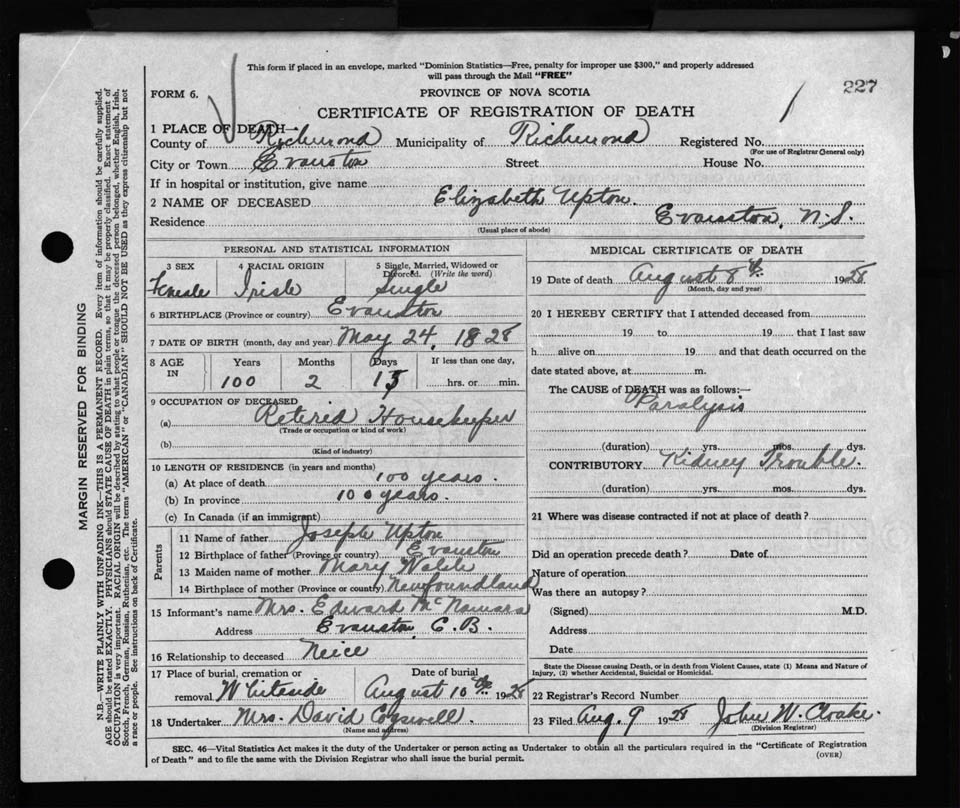 This form if placed in an envelope, marked "Dominion Statistics—Free, penalty for improper use $300," and properly addressed
will pass through the Mail "FREE"
FORM 6.
PROVINCE OF NOVA SCOTIA
227
CERTIFICATE OF REGISTRATION OF DEATH
1 PLACE OF DEATH—
County of Richmond Municipality of Richmond Registered No.
(For use of Registrar General only)
City or Town Evanston Street House No.
If in hospital or institution, give name
2 NAME OF DECEASED Elizabeth Upton.
Residence Evanston, N.S.
(Usual place of abode)
PERSONAL AND STATISTICAL INFORMATION
3 SEX 4 RACIAL ORIGIN 5 Single, Married, Widowed or
Divorced. (Write the word)
Female Irish Single
6 BIRTHPLACE (Province or country) Evanston
7 DATE OF BIRTH (month, day and year) May 24, 1828
8 AGE IN Years Months Days If less than one day,
100 2 15 hrs. or min.
9 OCCUPATION OF DECEASED
(a) Retired Housekeeper
(Trade or occupation or kind of work)
(b)
(Kind of industry)
10 LENGTH OF RESIDENCE (in years and months)
(a) At place of death 100 years.
(b) In province 100 years.
(c) In Canada (if an immigrant)
Parents
11 Name of father Joseph Upton
12 Birthplace of father (Province or country) Evanston
13 Maiden name of mother Mary Walsh
14 Birthplace of mother (Province or country) Newfoundland
15 Informant's name Mrs. Edward McNamara
Address Evanston, C.B.
16 Relationship to deceased Neice
17 Place of burial, cremation or Date of burial
removal Whiteside August 10th 1928
18 Undertaker Mrs. David Cogswell.
(Name and address)
MEDICAL CERTIFICATE OF DEATH
19 Date of death August 8th 1928
(Month, day and year)
20 I HEREBY CERTIFY that I attended deceased from
19 to 19 that I last saw
h alive on 19 and that death occurred on the
date stated above, at m.
The CAUSE of DEATH was as follows:—
Paralysis
(duration) yrs. mos. dys.
CONTRIBUTORY Kidney Trouble.
(duration) yrs. mos. dys.
21 Where was disease contracted if not at place of death?
Did an operation precede death? Date of
Nature of operation
Was there an autopsy?
(Signed) M.D.
Address
Date
State the Disease causing Death, or in death from Violent Causes, state (1) Means and Nature of
Injury, (2) whether Accidental, Suicidal or Homicidal.
22 Registrar's Record Number
23 Filed Aug. 9 1928 John W. Cloake.
(Division Registrar)
SEC. 46—Vital Statistics Act makes it the duty of the Undertaker or person acting as Undertaker to obtain all the particulars required in the "Certificate of Registration
of Death" and to file the same with the Division Registrar who shall issue the burial permit.
(OVER)
MARGIN RESERVED FOR BINDING
N.B.—WRITE PLAINLY WITH UNFADING INK—THIS IS A PERMANENT RECORD. Every item of information should be carefully supplied.
AGE should be stated EXACTLY. PHYSICIANS should STATE CAUSE OF DEATH in plain terms, so that it may be properly classified. Exact statement of
OCCUPATION is very important. RACIAL ORIGIN will be described by stating to what people or tongue the deceased person belonged, whether English, Irish,
Scotch, French, German, Russian, Ruthenian, etc. The terms "AMERICAN" or "CANADIAN" SHOULD NOT BE USED as they express citizenship but not
a race or people. See instructions on back of Certificate.